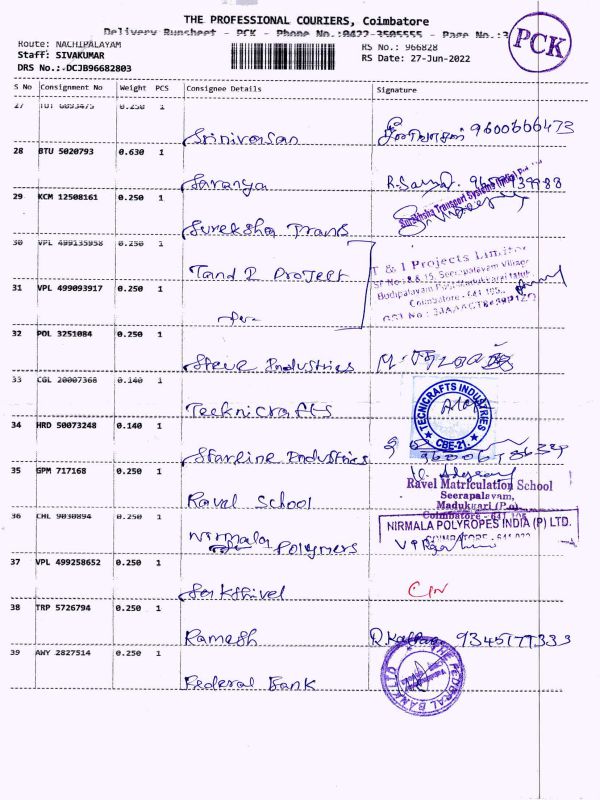 THE PROFESSIONAL COURIERS, Coimbatore
Delivery Runsheet - PCK - Phone No.:0422-3505555 - Page No.:3
PCK
Route: NACHIPALAYAM
RS No.: 966828
Staff: SIVAKUMAR
RS Date: 27-Jun-2022
DRS No.:-DCJB96682803
S No Consignment No Weight PCS Consignee Details Signature
27 0.250 1
Srinivasan 9600666473
28 BTU 5020793 0.630 1
Saranya
29 KCM 12508161 0.250 1
Sureksha Trans
30 VPL 499135958 0.250 1
T and I Project
T & I Projects Limited
SF No: 8 & 15, Seerapalayam Village
31 VPL 499093917 0.250 1
Coimbatore - 641 105.
32 POL 3251084 0.250 1
Steve Industries
33 CGL 20007368 0.140 1
Tecknicrafts
TECNICRAFTS INDUSTRIES
CBE-21
34 HRD 50073248 0.140 1
Starline Industries
35 GPM 717168 0.250 1
Ravel School
Ravel Matriculation School
Seerapalavam,
Madukkari (P.o)
Coimbatore - 641 105
36 CHL 9030894 0.250 1
Nirmala Polymers
NIRMALA POLYROPES INDIA (P) LTD.
37 VPL 499258652 0.250 1
Sakthivel
38 TRP 5726794 0.250 1
Ramesh 9345177333
39 AWY 2827514 0.250 1
Federal Bank
THE FEDERAL BANK LTD